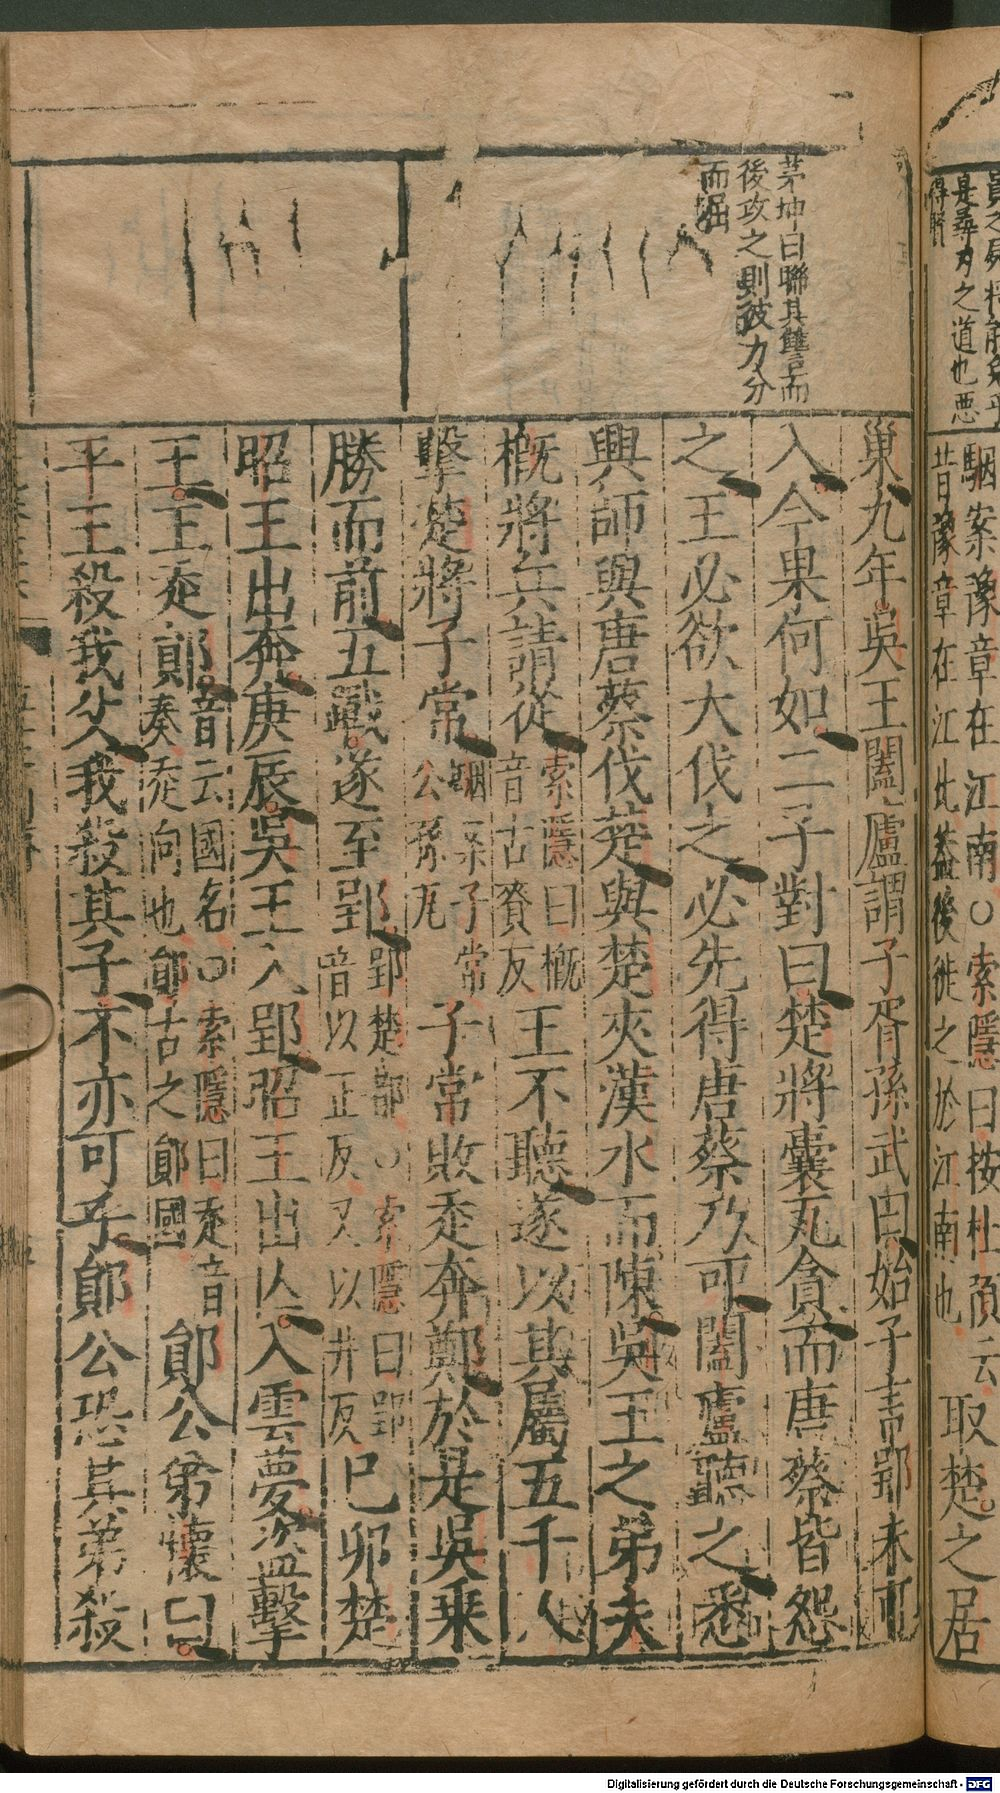 員之
是尋刃之道也惡
得胥
駰案豫章在江南○索隱曰按杜預云
昔豫章在江北蓋後徙之於江南也
取楚之居
茅坤曰聯其讐而
後攻之則彼力分
而屈
巢九年吳王闔廬謂子胥孫武曰始子言郢未可
入今果何如二子對曰楚將囊瓦貪而唐蔡皆怨
之王必欲大伐之必先得唐蔡乃可闔廬聽之悉
興師與唐蔡伐楚與楚夾漢水而陳吳王之弟夫
概將兵請從
索隱曰概
音古賚反
王不聽遂以其屬五千人
擊楚將子常
駰案子常
公孫瓦
子常敗走奔鄭於是吳乘
勝而前五戰遂至郢
郢楚都○索隱曰郢
音以正反又以井反
己卯楚
昭王出奔庚辰吳王入郢昭王出亡入雲夢盜擊
王王走鄖
音云國名○索隱曰走音
奏走向也鄖古之鄖國
鄖公弟懷曰
平王殺我父我殺其子不亦可乎鄖公恐其弟殺
Digitalisierung gefördert durch die Deutsche Forschungsgemeinschaft - DFG